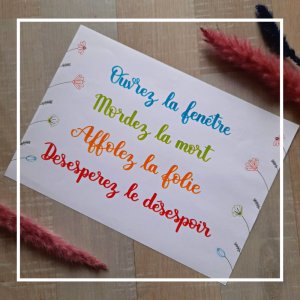 Ouvrez la fenêtre
Mordez la mort
Affolez la folie
Desesperez le désespoir